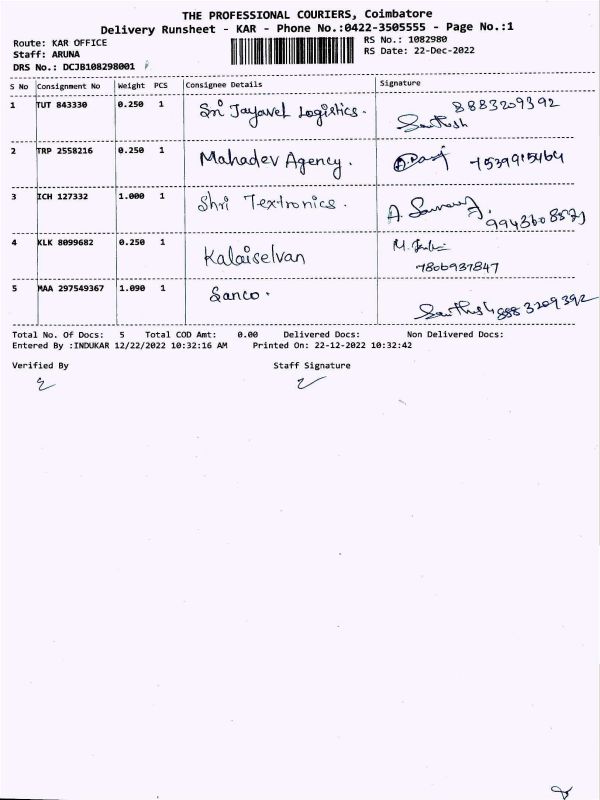 THE PROFESSIONAL COURIERS, Coimbatore
Delivery Runsheet - KAR - Phone No.:0422-3505555 - Page No.:1
Route: KAR OFFICE RS No.: 1082980
Staff: ARUNA RS Date: 22-Dec-2022
DRS No.: DCJB108298001
S No Consignment No Weight PCS Consignee Details Signature
1 TUT 843330 0.250 1 Sri Jayavel Logistics. 8883209392
Santhosh
2 TRP 2558216 0.250 1 Mahadev Agency. 7539915464
3 ICH 127332 1.000 1 Shri Textronics.
4 KLK 8099682 0.250 1 Kalaiselvan
7806937847
5 MAA 297549367 1.090 1 Sanco. 8883209392
Total No. Of Docs: 5 Total COD Amt: 0.00 Delivered Docs: Non Delivered Docs:
Entered By :INDUKAR 12/22/2022 10:32:16 AM Printed On: 22-12-2022 10:32:42
Verified By Staff Signature